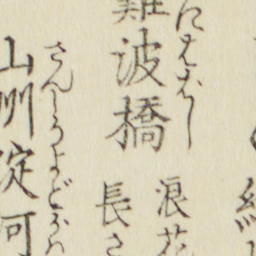 にはばし
難波橋
浪花
長さ
さんしうよどがは
山州淀河